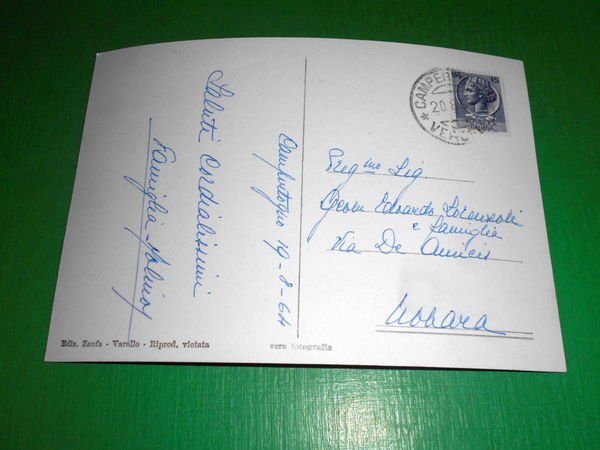 Saluti Cordialissimi
Famiglia
Campertogno 19-8-64
* CAMPER
20.8
VER
15
Preg mo Sig
Geom Edoardo Lorenzoli
e famiglia
Via De Amicis
Novara
Ediz. Zanfa - Varallo - Riprod. vietata
vera fotografia